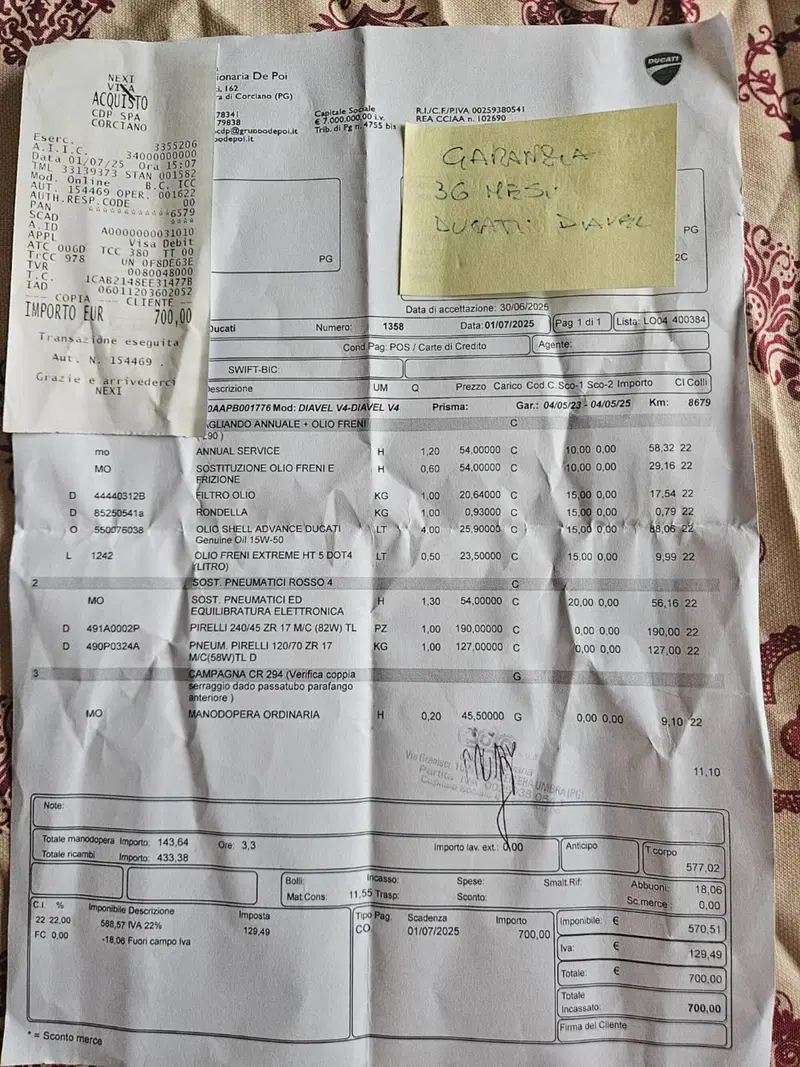 NEXI
VISA
ACQUISTO
CDP SPA
CORCIANO
Eserc. 3355206
A.I.I.C. 34000000000
Data 01/07/25 Ora 15:07
TML 33139373 STAN 001582
Mod. Online B.C. ICC
AUT. 154469 OPER. 001622
AUTH.RESP.CODE 00
PAN ************6579
SCAD ****
A.ID A0000000031010
APPL Visa Debit
ATC 006D TCC 380 TT 00
TrCC 978 UN 0F8DE63E
TVR 0080048000
T.C. 1CAB2148EE31477B
IAD 06011203602052
--- COPIA -- CLIENTE ---
IMPORTO EUR 700,00
Transazione eseguita
Aut. N. 154469 .
Grazie e arrivederci
NEXI
ionaria De Poi
i, 162
a di Corciano (PG)
78341
79838
cdp@gruppodepoi.it
odepoi.it
Capitale Sociale
€ 7.000.000,00 i.v.
Trib. di Pg n. 4755 bis
R.I./C.F./P.IVA 00259380541
REA CCIAA n. 102690
DUCATI
GARANZIA
36 MESI
DUCATI DIAVEL
PG
PG
2C
Data di accettazione: 30/06/2025
Ducati Numero: 1358 Data: 01/07/2025 Pag 1 di 1 Lista: LO04 400384
Cond.Pag: POS / Carte di Credito Agente:
SWIFT-BIC:
escrizione UM Q Prezzo Carico Cod.C. Sco-1 Sco-2 Importo CI Colli
0AAPB001776 Mod: DIAVEL V4-DIAVEL V4 Prisma: Gar.: 04/05/23 - 04/05/25 Km: 8679
AGLIANDO ANNUALE + OLIO FRENI C
mo ANNUAL SERVICE H 1,20 54,00000 C 10,00 0,00 58,32 22
MO SOSTITUZIONE OLIO FRENI E H 0,60 54,00000 C 10,00 0,00 29,16 22
FRIZIONE
D 44440312B FILTRO OLIO KG 1,00 20,64000 C 15,00 0,00 17,54 22
D 85250541a RONDELLA KG 1,00 0,93000 C 15,00 0,00 0,79 22
O 550076038 OLIO SHELL ADVANCE DUCATI LT 4,00 25,90000 C 15,00 0,00 88,06 22
Genuine Oil 15W-50
L 1242 OLIO FRENI EXTREME HT 5 DOT4 LT 0,50 23,50000 C 15,00 0,00 9,99 22
(LITRO)
2 SOST. PNEUMATICI ROSSO 4 C
MO SOST. PNEUMATICI ED H 1,30 54,00000 C 20,00 0,00 56,16 22
EQUILIBRATURA ELETTRONICA
D 491A0002P PIRELLI 240/45 ZR 17 M/C (82W) TL PZ 1,00 190,00000 C 0,00 0,00 190,00 22
D 490P0324A PNEUM. PIRELLI 120/70 ZR 17 KG 1,00 127,00000 C 0,00 0,00 127,00 22
M/C(58W)TL D
3 CAMPAGNA CR 294 (Verifica coppia G
serraggio dado passatubo parafango
anteriore )
MO MANODOPERA ORDINARIA H 0,20 45,50000 G 0,00 0,00 9,10 22
11,10
Note:
Totale manodopera Importo: 143,64 Ore: 3,3 Importo lav. ext.: 0,00 Anticipo T.corpo
Totale ricambi Importo: 433,38 577,02
Bolli: Incasso: Spese: Smalt.Rif: Abbuoni: 18,06
Mat Cons: 11,55 Trasp: Sconto: Sc.merce : 0,00
C.I. % Imponibile Descrizione Imposta Tipo Pag. Scadenza Importo
22 22,00 588,57 IVA 22% 129,49 CO 01/07/2025 700,00
FC 0,00 -18,06 Fuori campo Iva
Imponibile: € 570,51
Iva: € 129,49
Totale: € 700,00
Totale
Incassato: 700,00
Firma del Cliente
* = Sconto merce